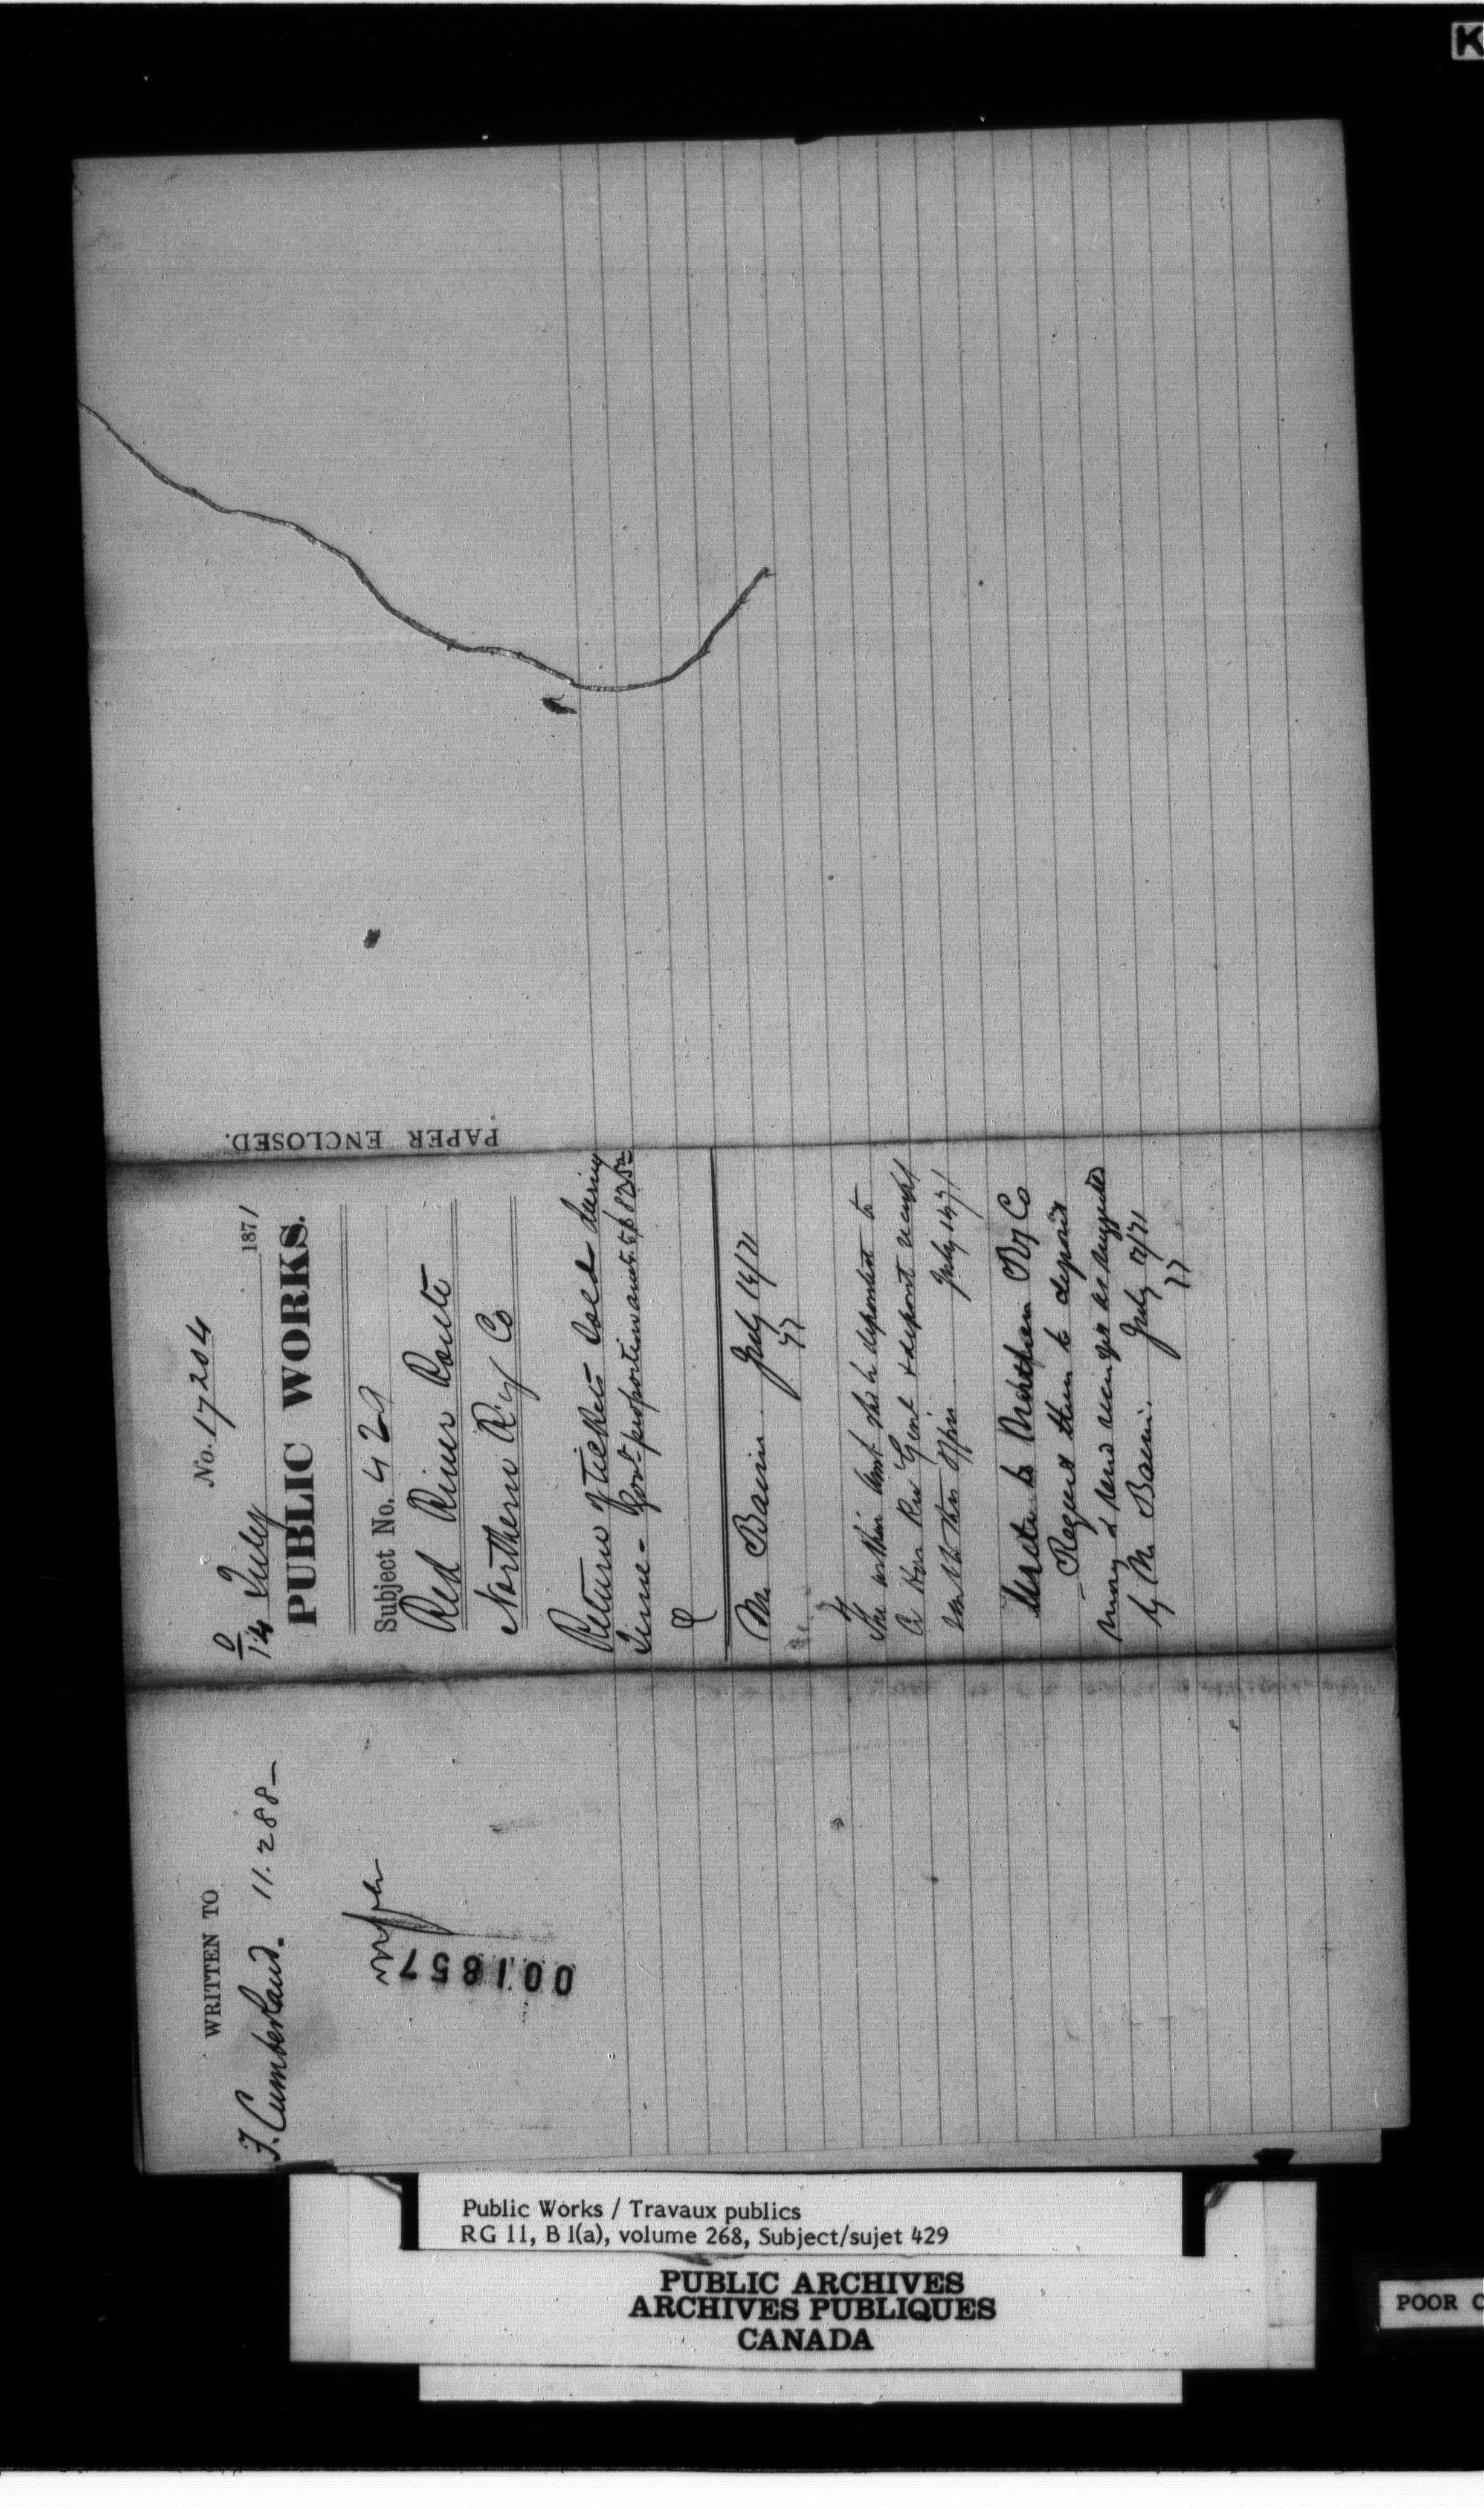 WRITTEN TO
F. Cumberland. 11.288 —
001857
No. 17204
14 July 1871
PUBLIC WORKS.
Subject No. 429
Red River Route
Northern R'y Co
Return of Tickets Sold during
June - Govt proportion amts to
Mr Bain July 14/71
The within amt to be deposited to
Cr Hon Rec Genl & deposit receipt
to this Office July 1871
Write to Northern Ry Co
Request them to deposit
money & send receipt as suggested
by Mr Bain. July 17/71
PAPER ENCLOSED.
Public Works / Travaux publics
RG 11, B 1(a), volume 268, Subject/sujet 429
PUBLIC ARCHIVES
ARCHIVES PUBLIQUES
CANADA
POOR
K